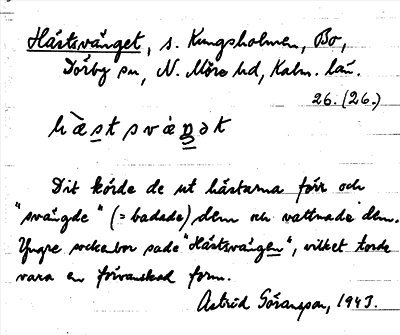 Hästsvänget, s. Kungsholmen, Bo,
Dörby sn, N. Möre hd, Kalm. län.
26. (26.)
hæ̀stsvæ̀ŋət
Dit körde de ut hästarna förr och
"svängde" (= badade) dem och vattnade dem.
Yngre sockenbor sade "Hästsvängen", vilket torde
vara en förvanskad form.
Astrid Göransson, 1943.